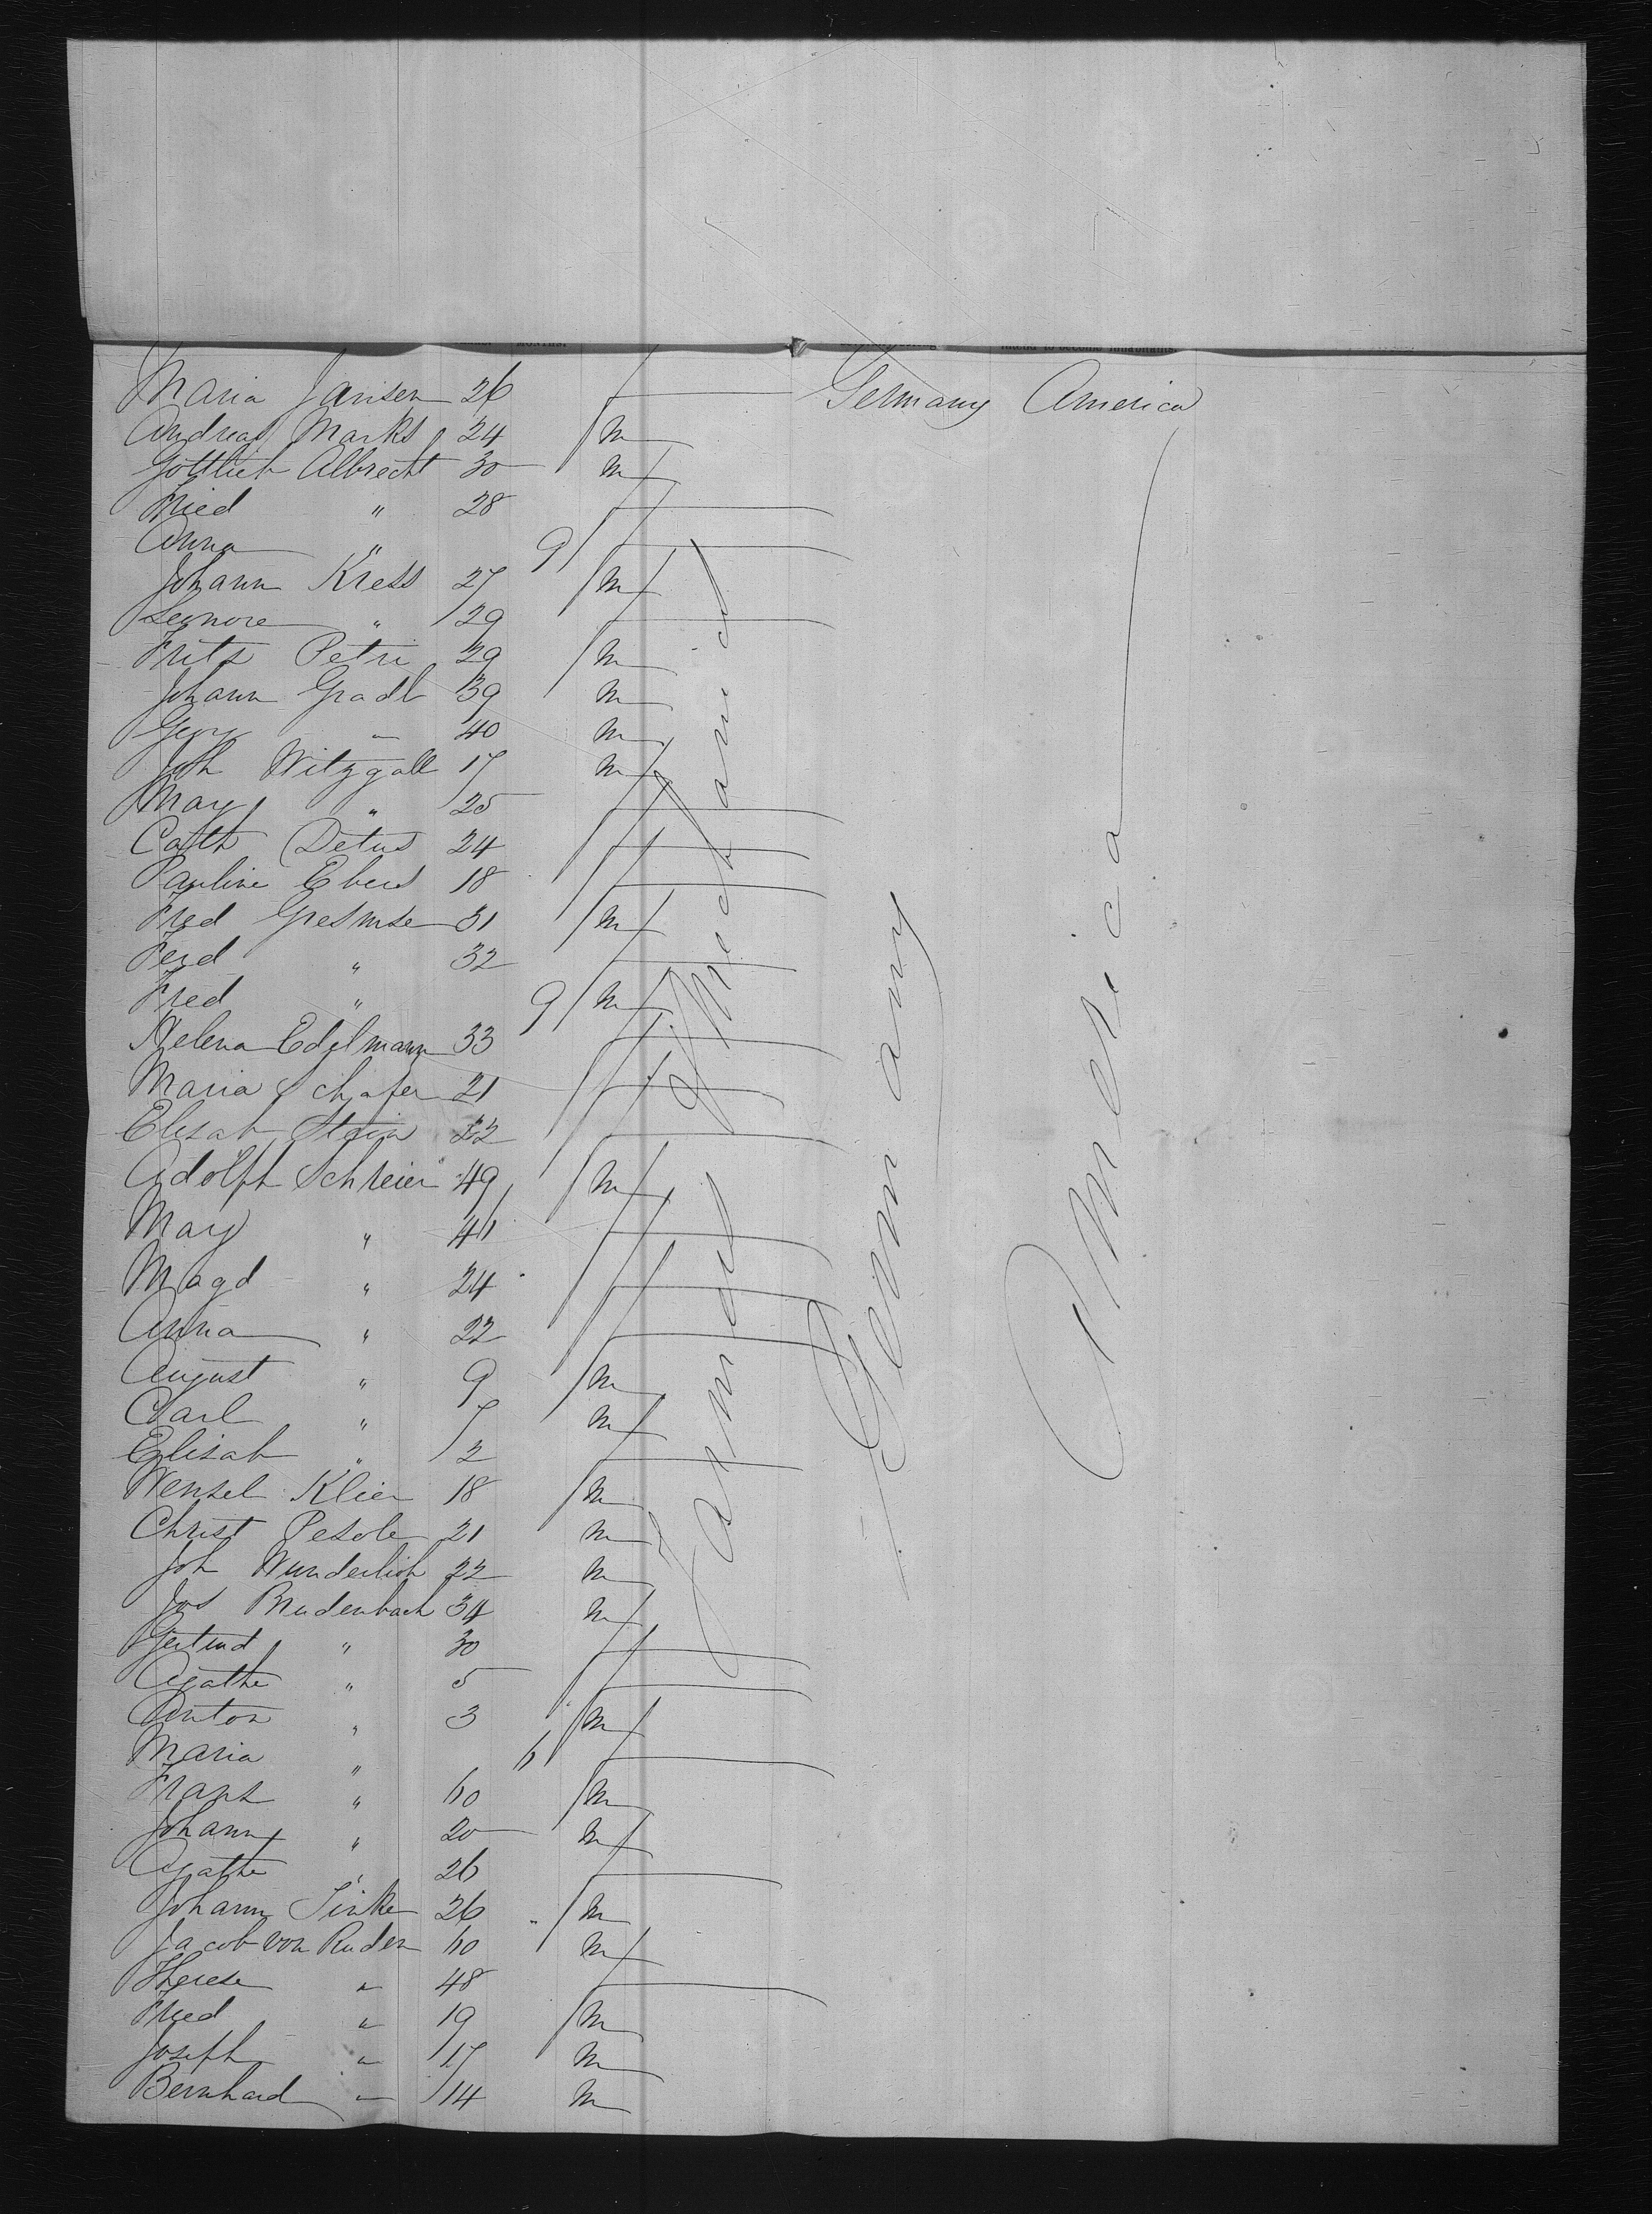 Maria Jansen 26 f Germany America
Andreas Marks 24 m
Gottlieb Albrecht 30 m
Fried " 28 f
Anna " 9 f
Johann Kress 27 m
Leonore " 29 f
Fritz Petri 29 m
Johann Gradl 39 m
Georg " 40 m
Joh Witzgall 17 m
Mary " 25 f
Cath Detus 24 f
Pauline Ebers 18 f
Fred 31 m
Ferd " 32 f
Fred " 9 m
Helena Edelmann 33 f
Maria Schafer 21 f
Elisab Stein 22 f
Adolph Schreier 49 m
Mary " 46 f
Magd " 24 f
Anna " 22 f
August " 9 m
Carl " 7 m
Elisab " 2 f
Wenzel Klier 18 m
Christ 21 m
Joh Wunderlich 22 m
Jos Breidenbach 34 m
Gertrud " 30 f
Agathe " 5 f
Anton " 3 m
Maria " 6 f
Franz " 60 m
Johann " 20 m
Agathe " 26 f
Johann Sinker 26 m
Jacob von Ruden 60 m
Therese " 48 f
Fried " 19 m
Joseph " 17 m
Bernhard " 14 m
Farmer & Mechanics
Germany
America